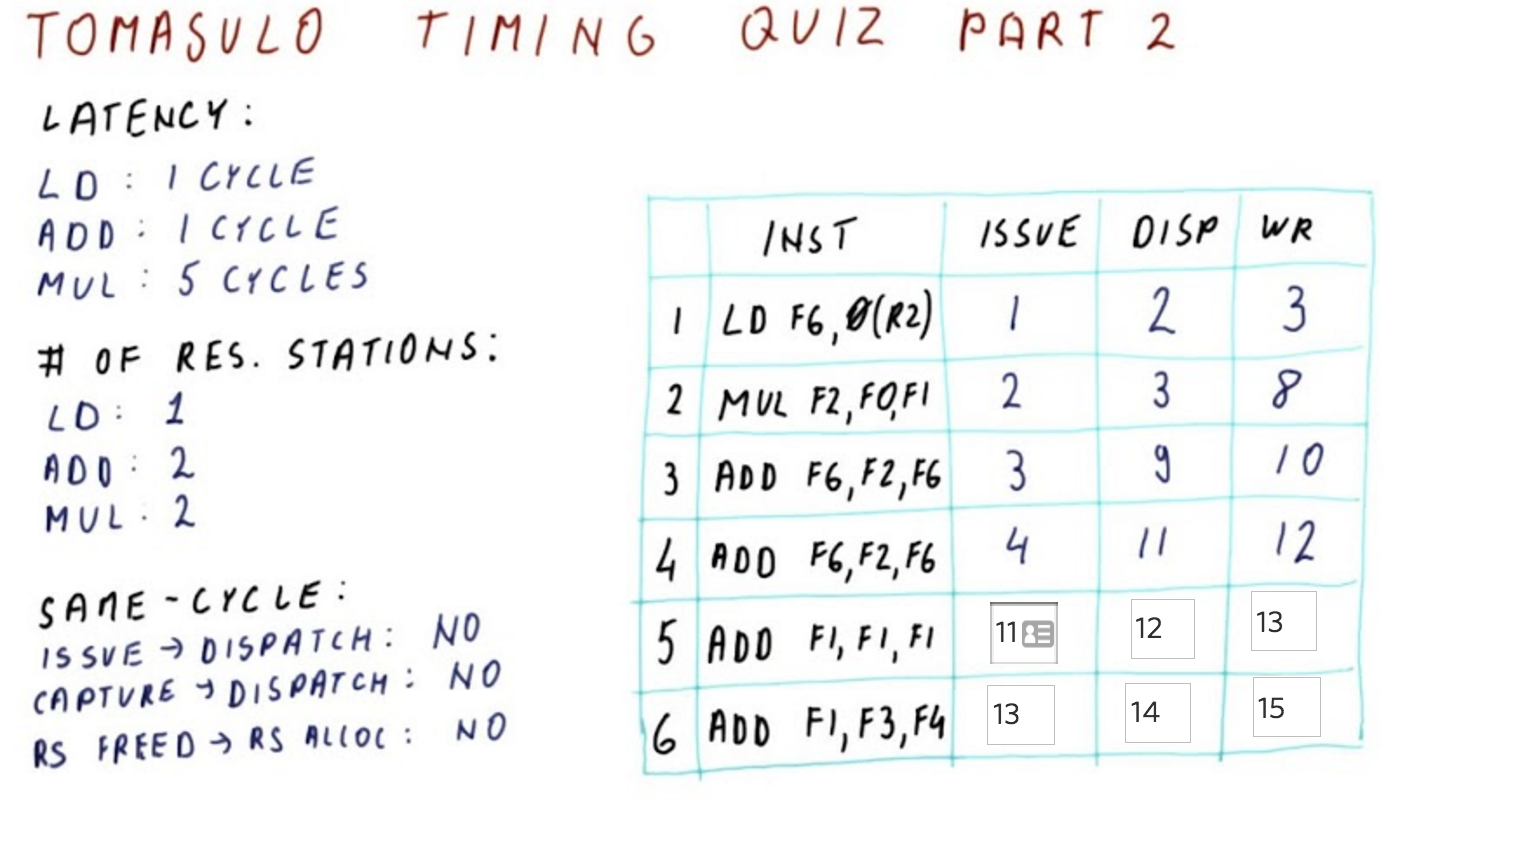 TOMASULO TIMING QUIZ PART 2
LATENCY:
LD: 1 CYCLE
ADD: 1 CYCLE
MUL: 5 CYCLES
# OF RES. STATIONS:
LD: 1
ADD: 2
MUL: 2
SAME-CYCLE:
ISSUE → DISPATCH: NO
CAPTURE → DISPATCH: NO
RS FREED → RS ALLOC: NO
INST ISSUE DISP WR
1 LD F6, 0(R2) 1 2 3
2 MUL F2, F0, F1 2 3 8
3 ADD F6, F2, F6 3 9 10
4 ADD F6, F2, F6 4 11 12
5 ADD F1, F1, F1 11 12 13
6 ADD F1, F3, F4 13 14 15